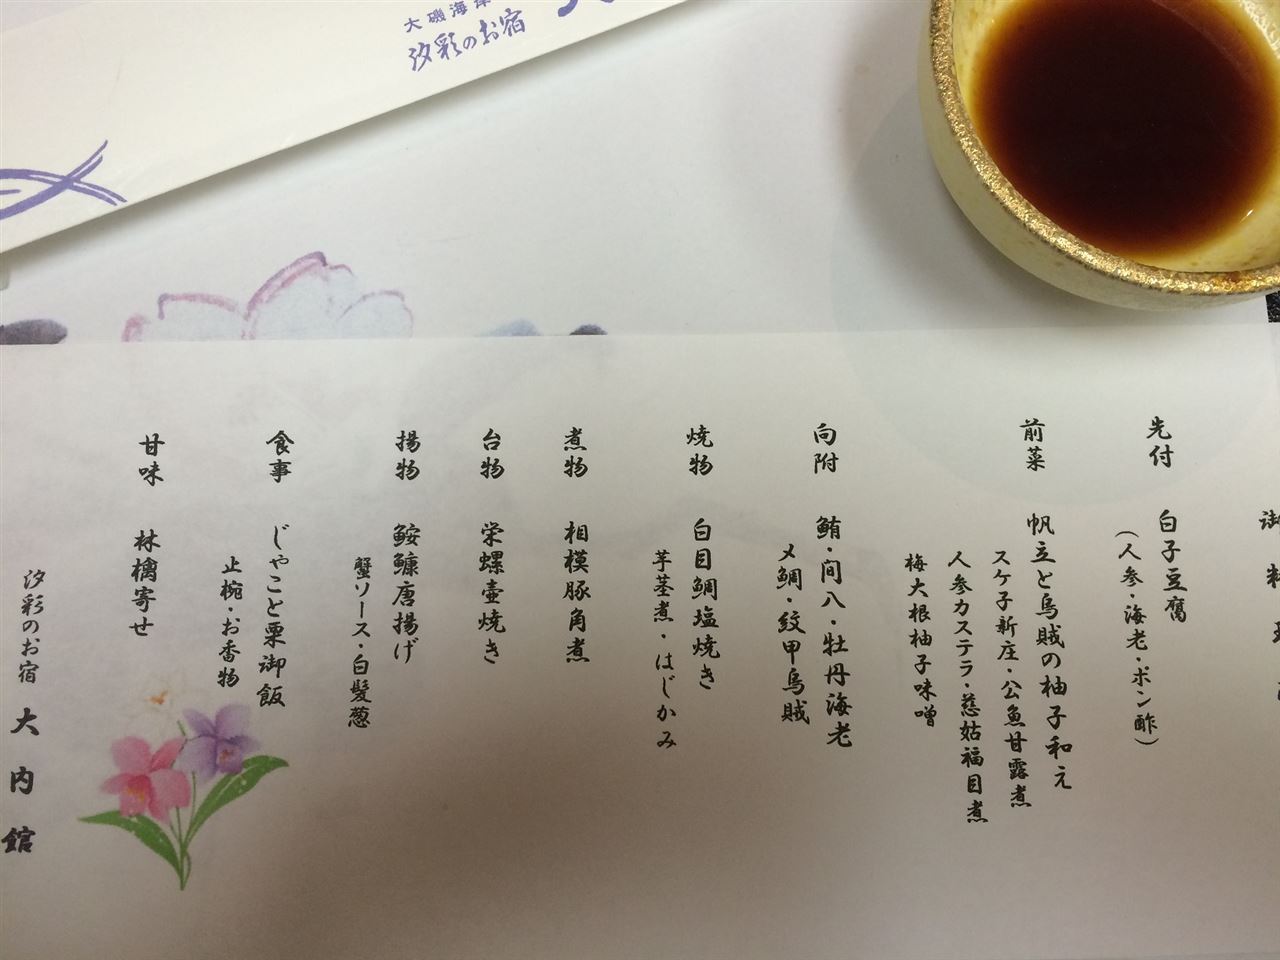 大磯海岸
汐彩のお宿
御料理
先付
白子豆腐
(人参・海老・ポン酢)
前菜
帆立と烏賊の柚子和え
スケ子新庄・公魚甘露煮
人参カステラ・慈姑福目煮
梅大根柚子味噌
向附
鮪・間八・牡丹海老
〆鯛・紋甲烏賊
焼物
白目鯛塩焼き
芋茎煮・はじかみ
煮物
相模豚角煮
台物
栄螺壷焼き
揚物
鮟鱇唐揚げ
蟹ソース・白髪葱
食事
じゃこと栗御飯
止椀・お香物
甘味
林檎寄せ
汐彩のお宿 大内館